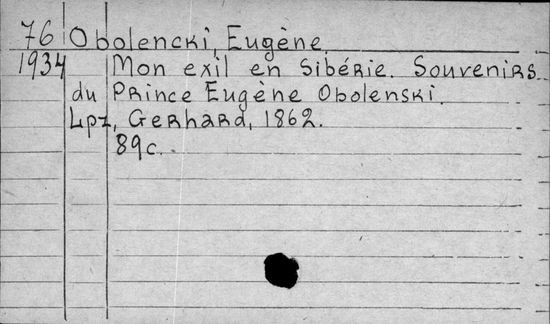 76 Obolencki, Eugène.
1934 Mon exil en Sibérie. Souvenirs
du Prince Eugène Obolenski.
Lpz, Gerhard, 1862.
89c.